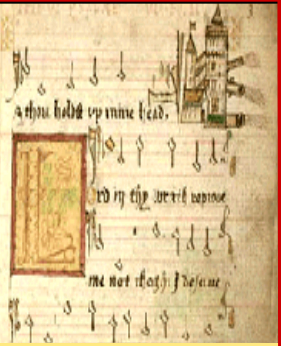 & thou holdst vp mine head,
rd in thy wrath reprove
me not though I deserue